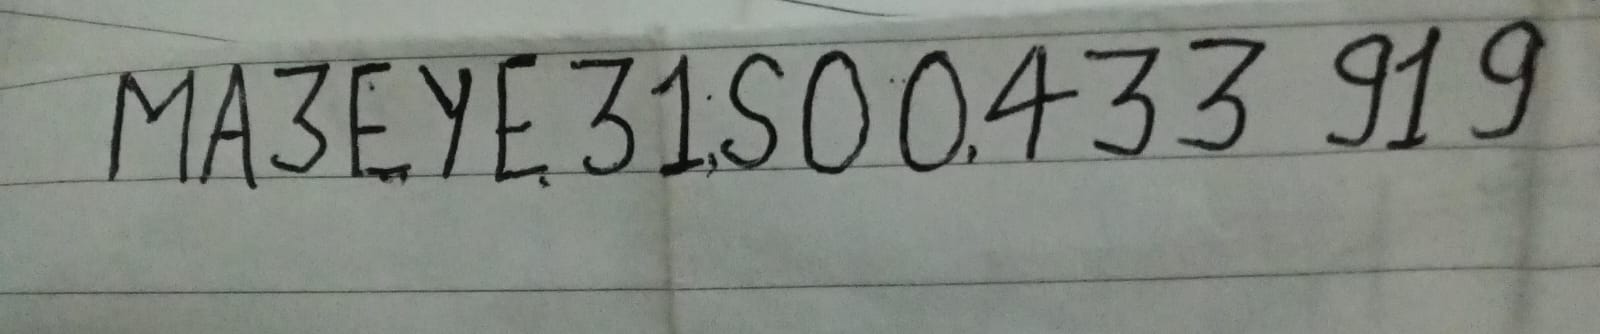 MA3EYE31,SOO,433 919